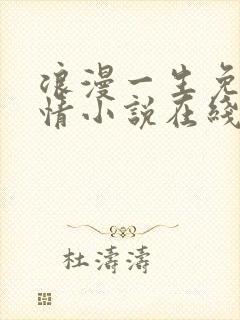 浪漫一生免
情小說在綫
杜濤濤